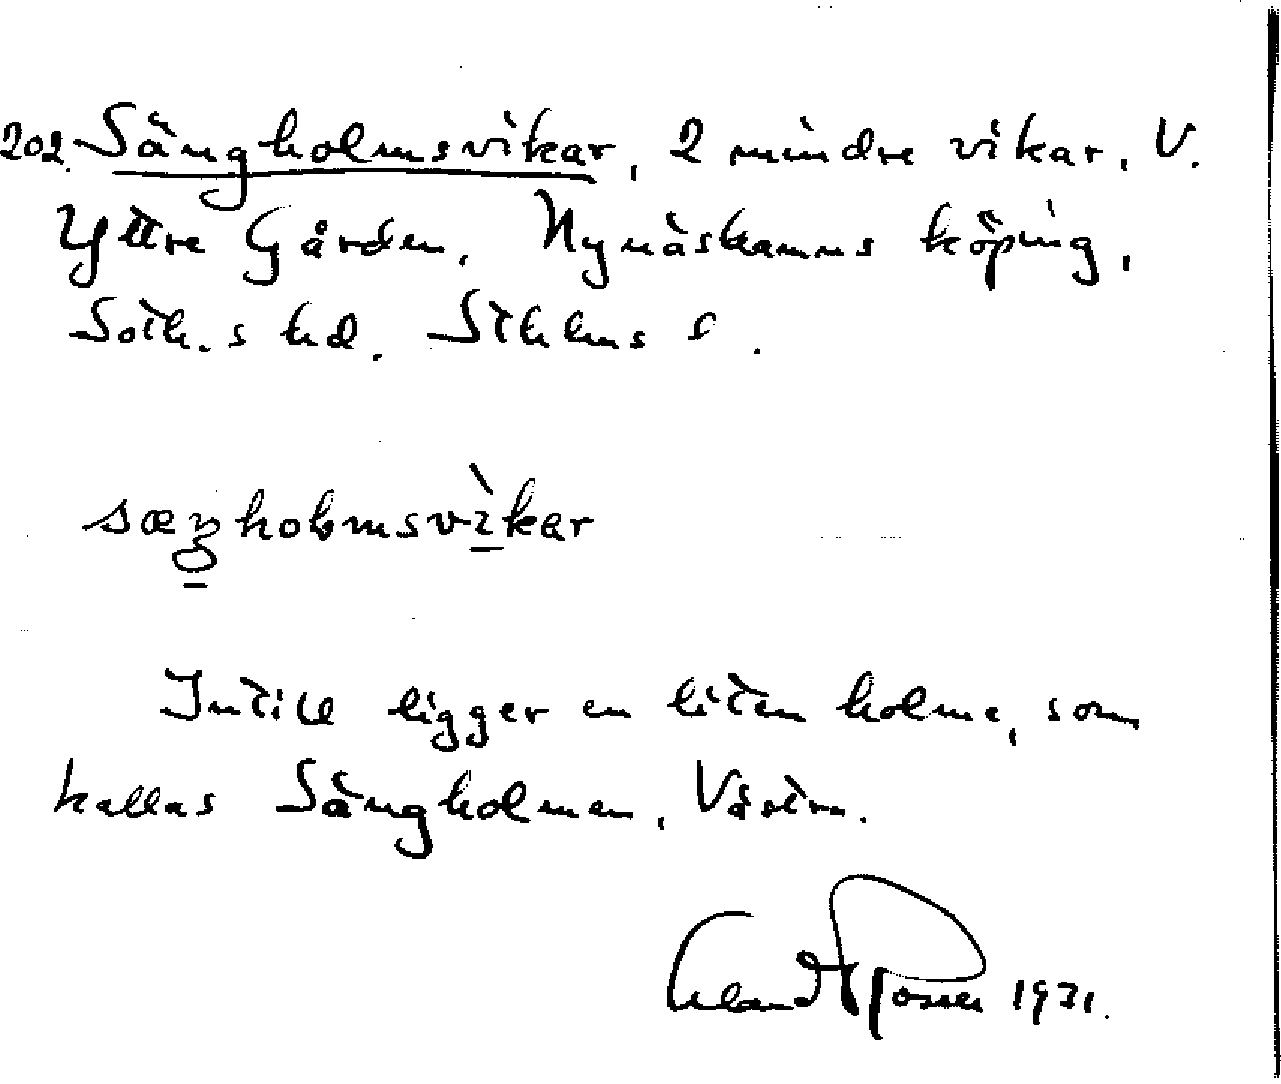 202. Sängholmsvikar, 2 mindre vikar. V.
Yttre Gården. Nynäshamns köping,
Soth.s hd. Sthlms
sæŋholmsvìkar
Intill ligger en liten holme, som
kallas Sängholmen,
1931.